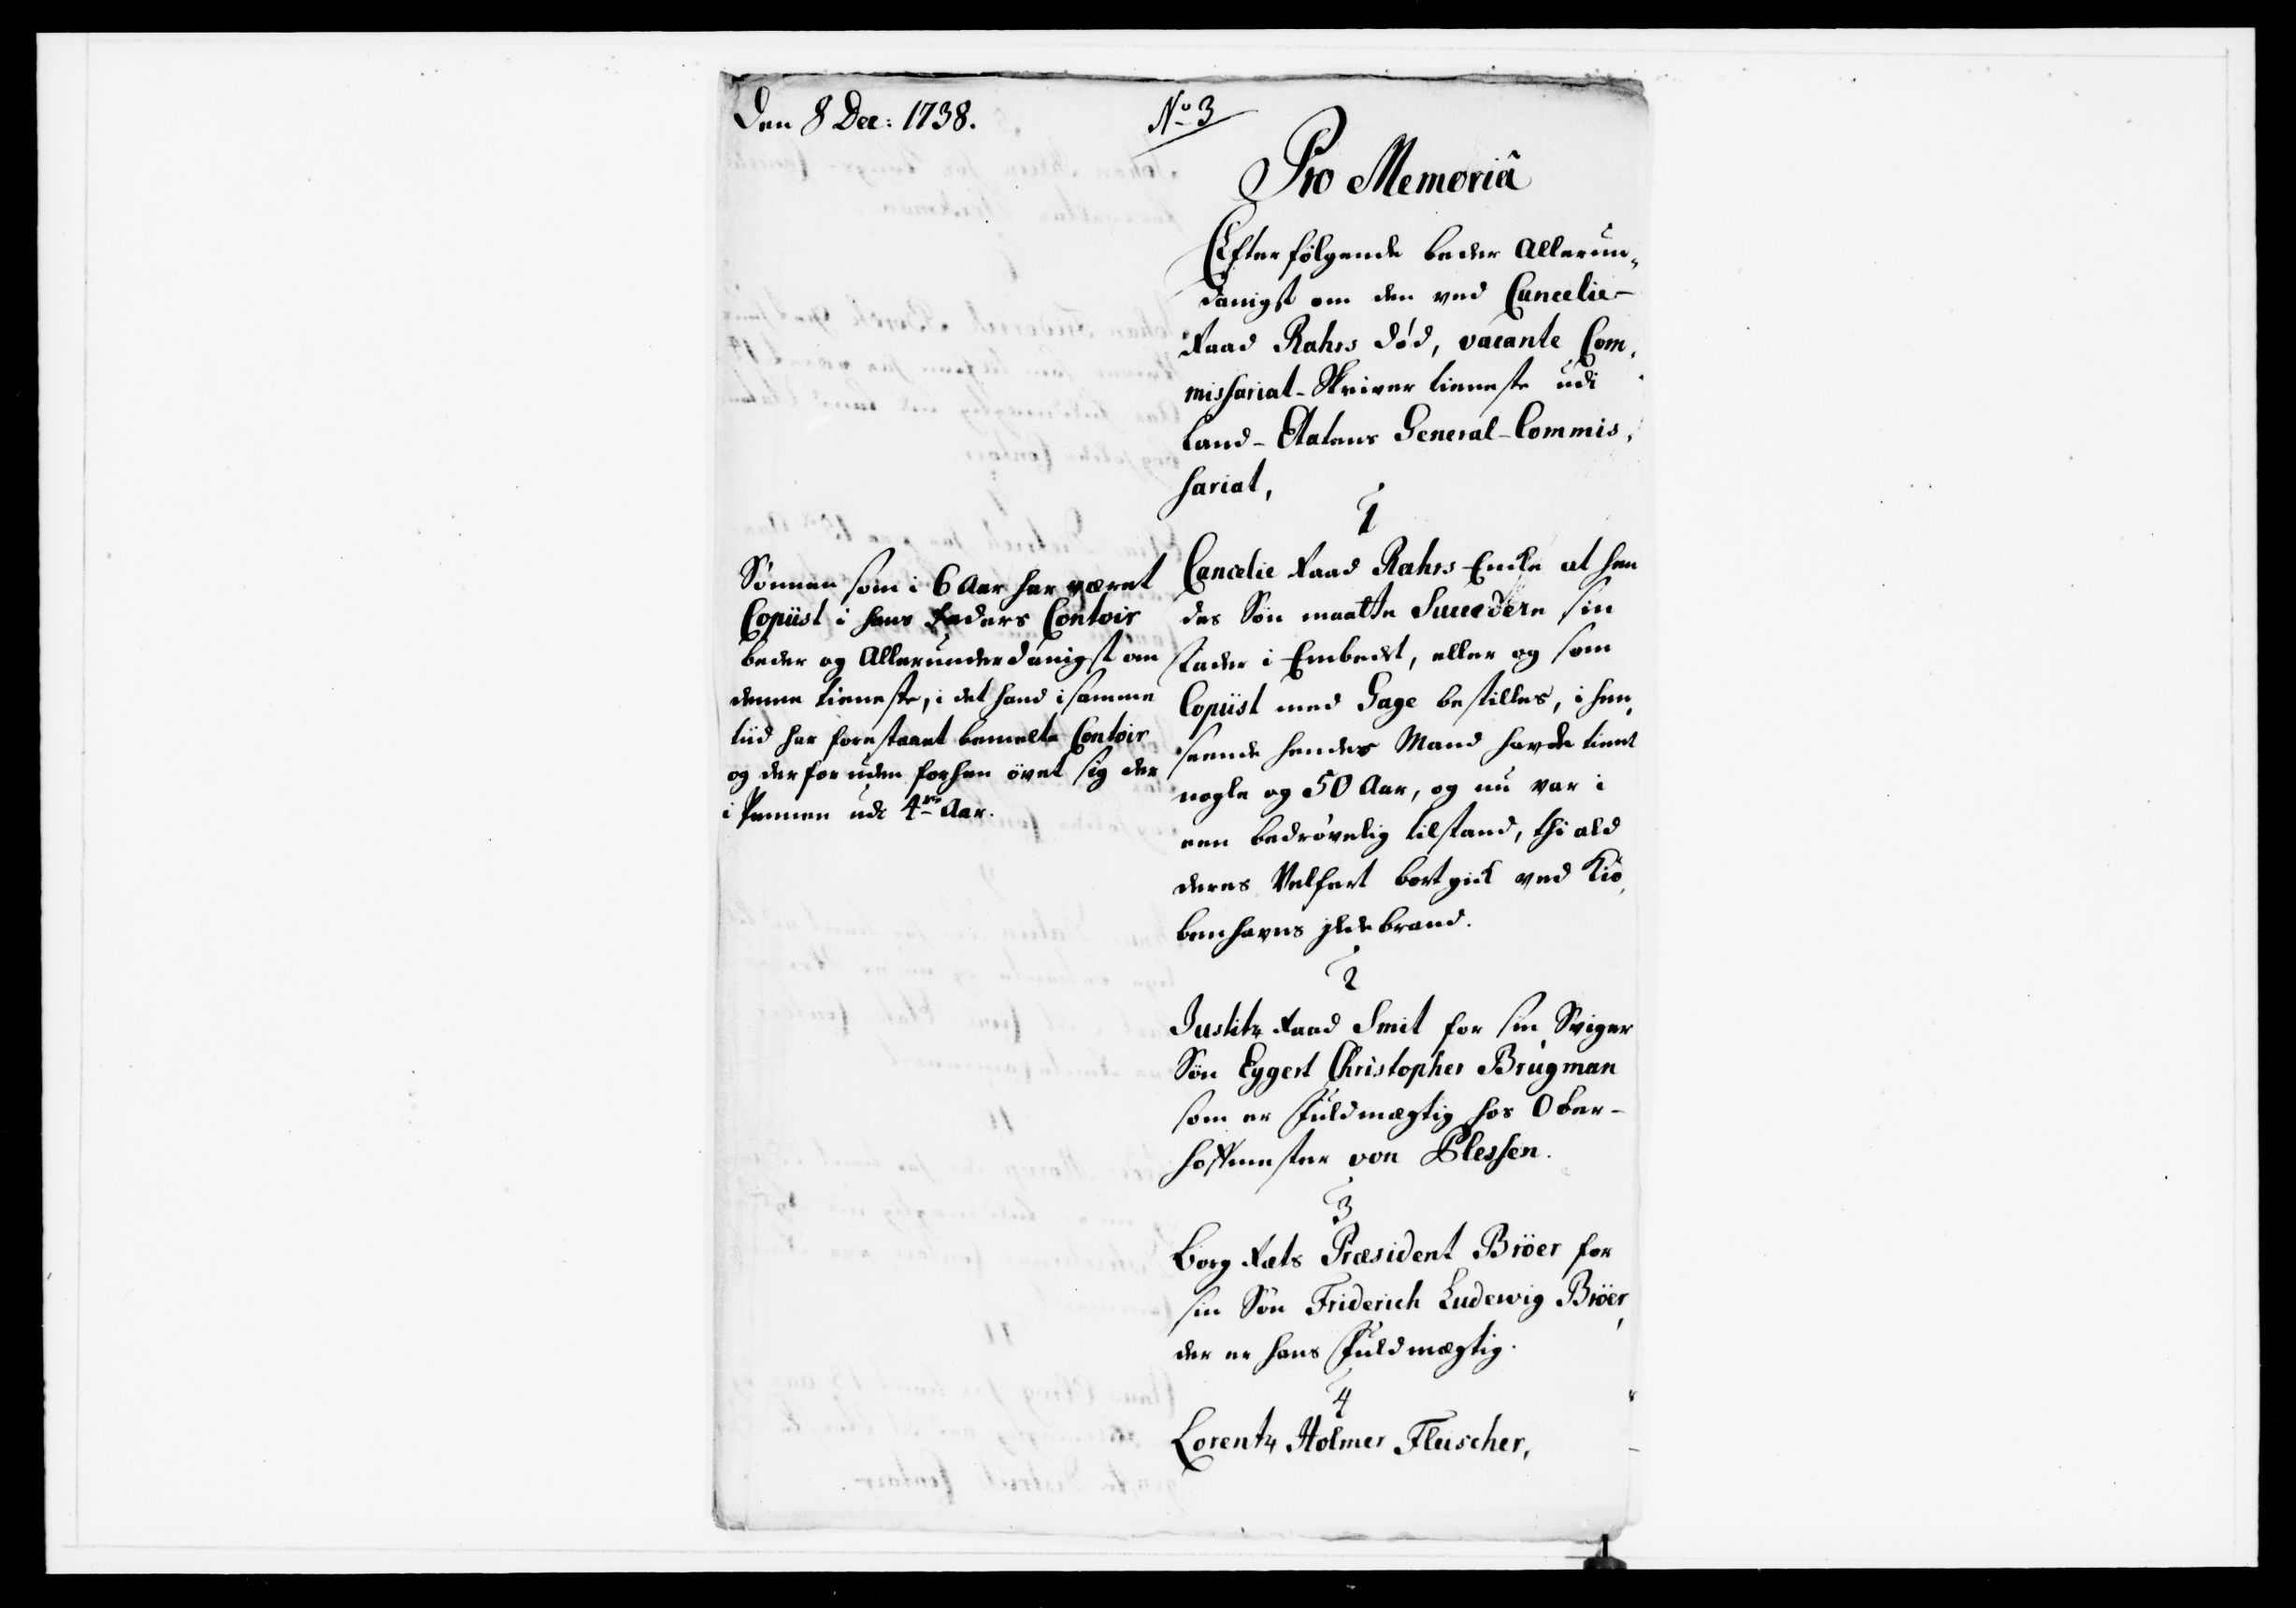 Den 8 Dec: 1738.
No 3
Pro Memoriâ
Efterfølgende beder Allerun„
danigst om den ved Cancelie-
Raad Rahrs død, vacante Com„
missariat-Skriver tieneste udi
Land-Etatens General-Commis„
sariat,
1
Cancelie Raad Rahrs Encke at hen
des Søn maatte Succedere sin
Fader i Embedet, eller og som
Copiist med Gage bestilles, i hen„
seende hendes Mand havde tient
nogle og 50 Aar, og nu var i
een bedrøvelig tilstand, thi ald
deres Velfert bortgick ved Kiø„
benhavns Ildebrand.
Sønnen som i 6 Aar har været
Copiist i hans Faders Contoir
beder og Allerunderdanigst om
denne tieneste, i det hand i samme
tiid har forestaaet bemelte Contoir
og der for uden forhen øvet sig der
i Pennen udi 4re Aar.
2
Justitz Raad Smit for sin Sviger
Søn Eggert Christopher Brugman
som er Fuldmægtig hos Ober-
hoffmester von Plessen.
3
Borg Rets Præsident Bröer for
sin Søn Friderich Ludewig Bröer,
der er hans Fuldmægtig.
4
Lorentz Holmer Fleischer,